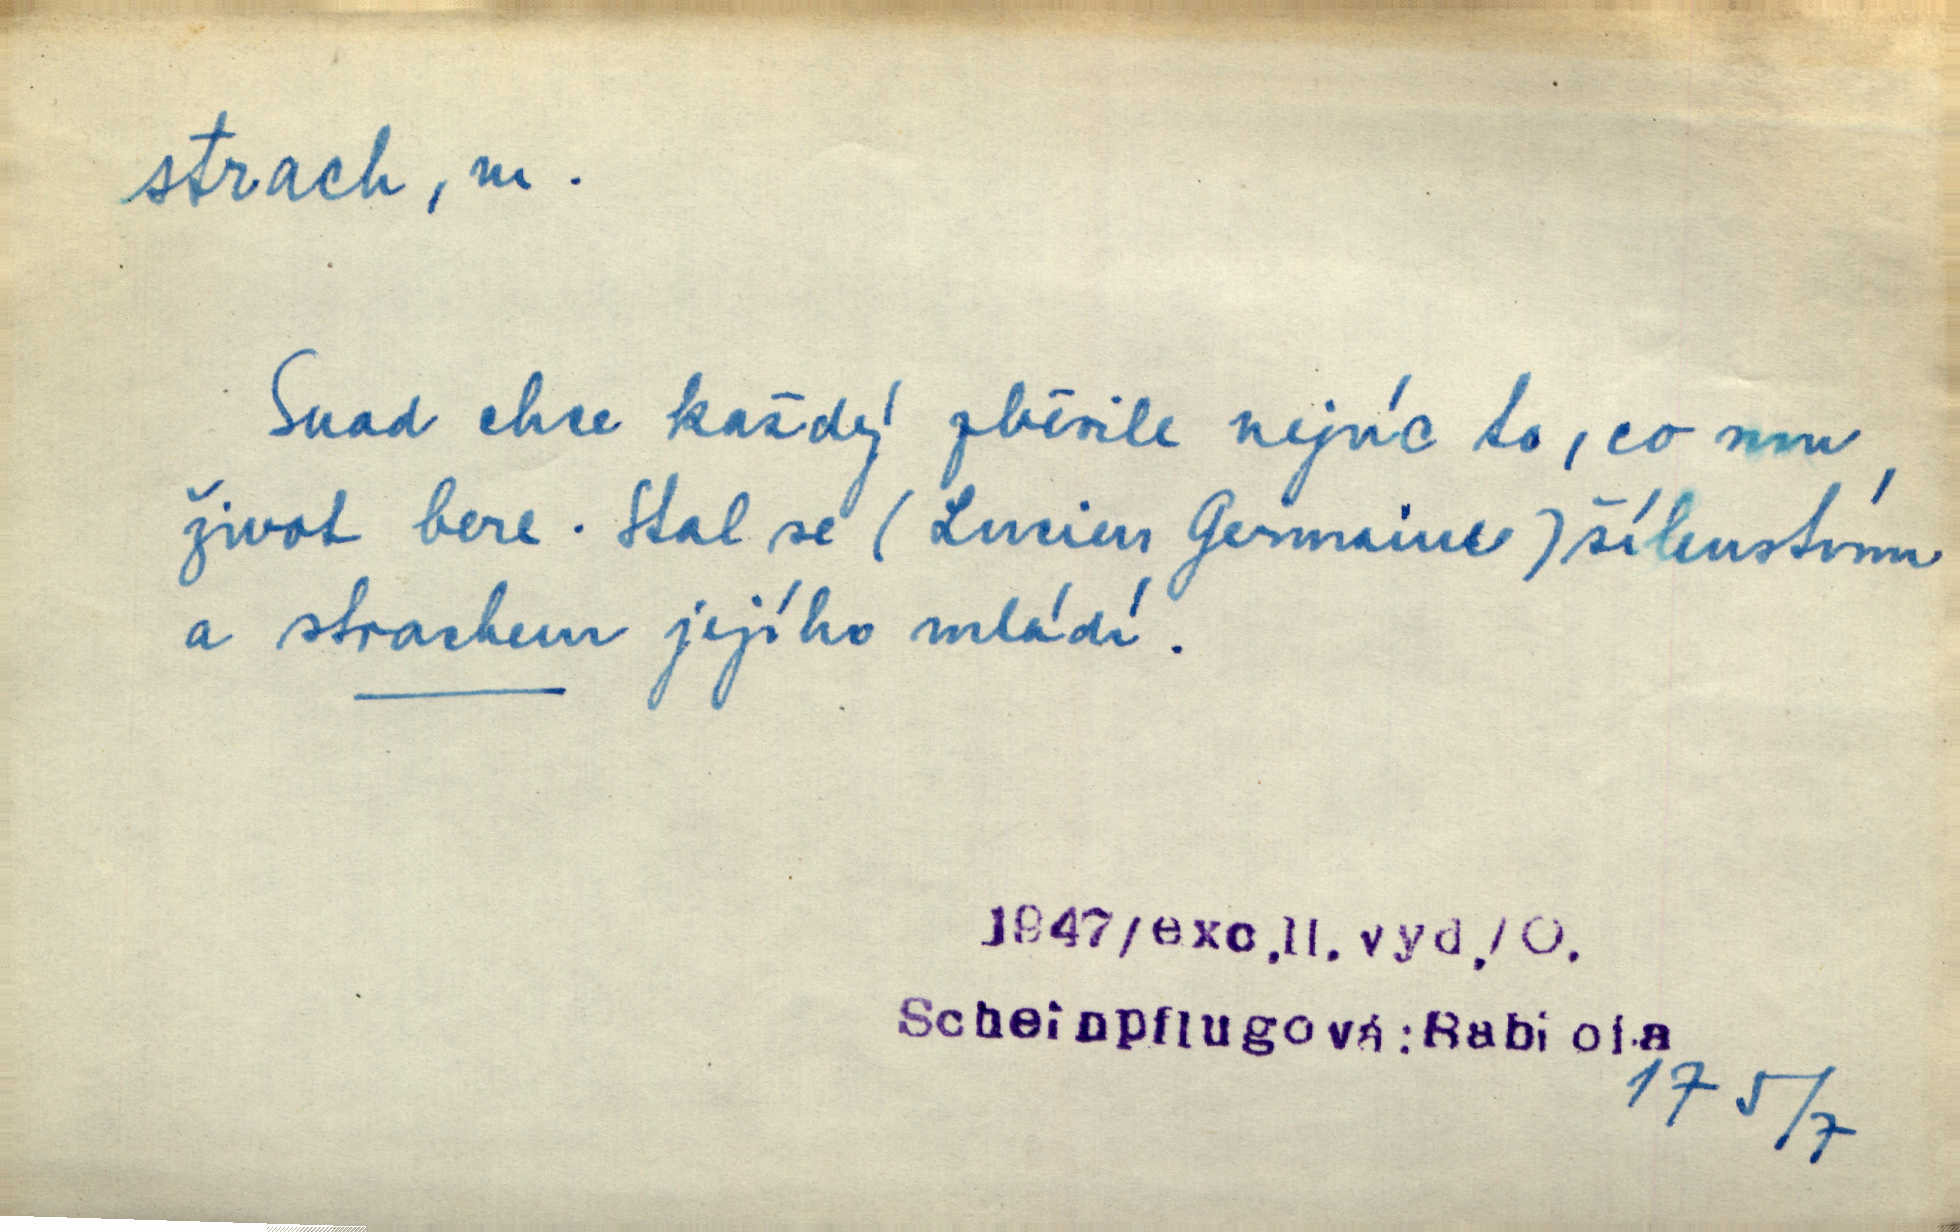 strach, m.
Snad chce každý zběsile nejvíc to, co mu
život bere. Stal se (Lucien Germaine) šílenstvím
a strachem jejího mládí.
1947/exc.II.vyd./O.
Scheinpflugová:Babiola
175/7